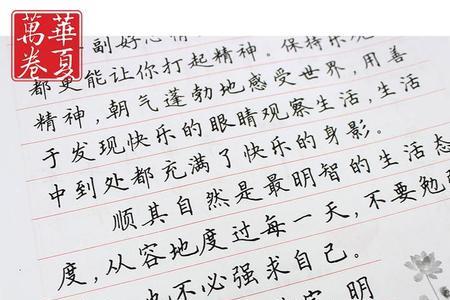 華夏
萬卷
一副好心情
都更能让你打起精神。保持乐观
精神，朝气蓬勃地感受世界，用善
于发现快乐的眼睛观察生活，生活
中到处都充满了快乐的身影。
顺其自然是最明智的生活态
度，从容地度过每一天，不要勉
也不必强求自己。
明